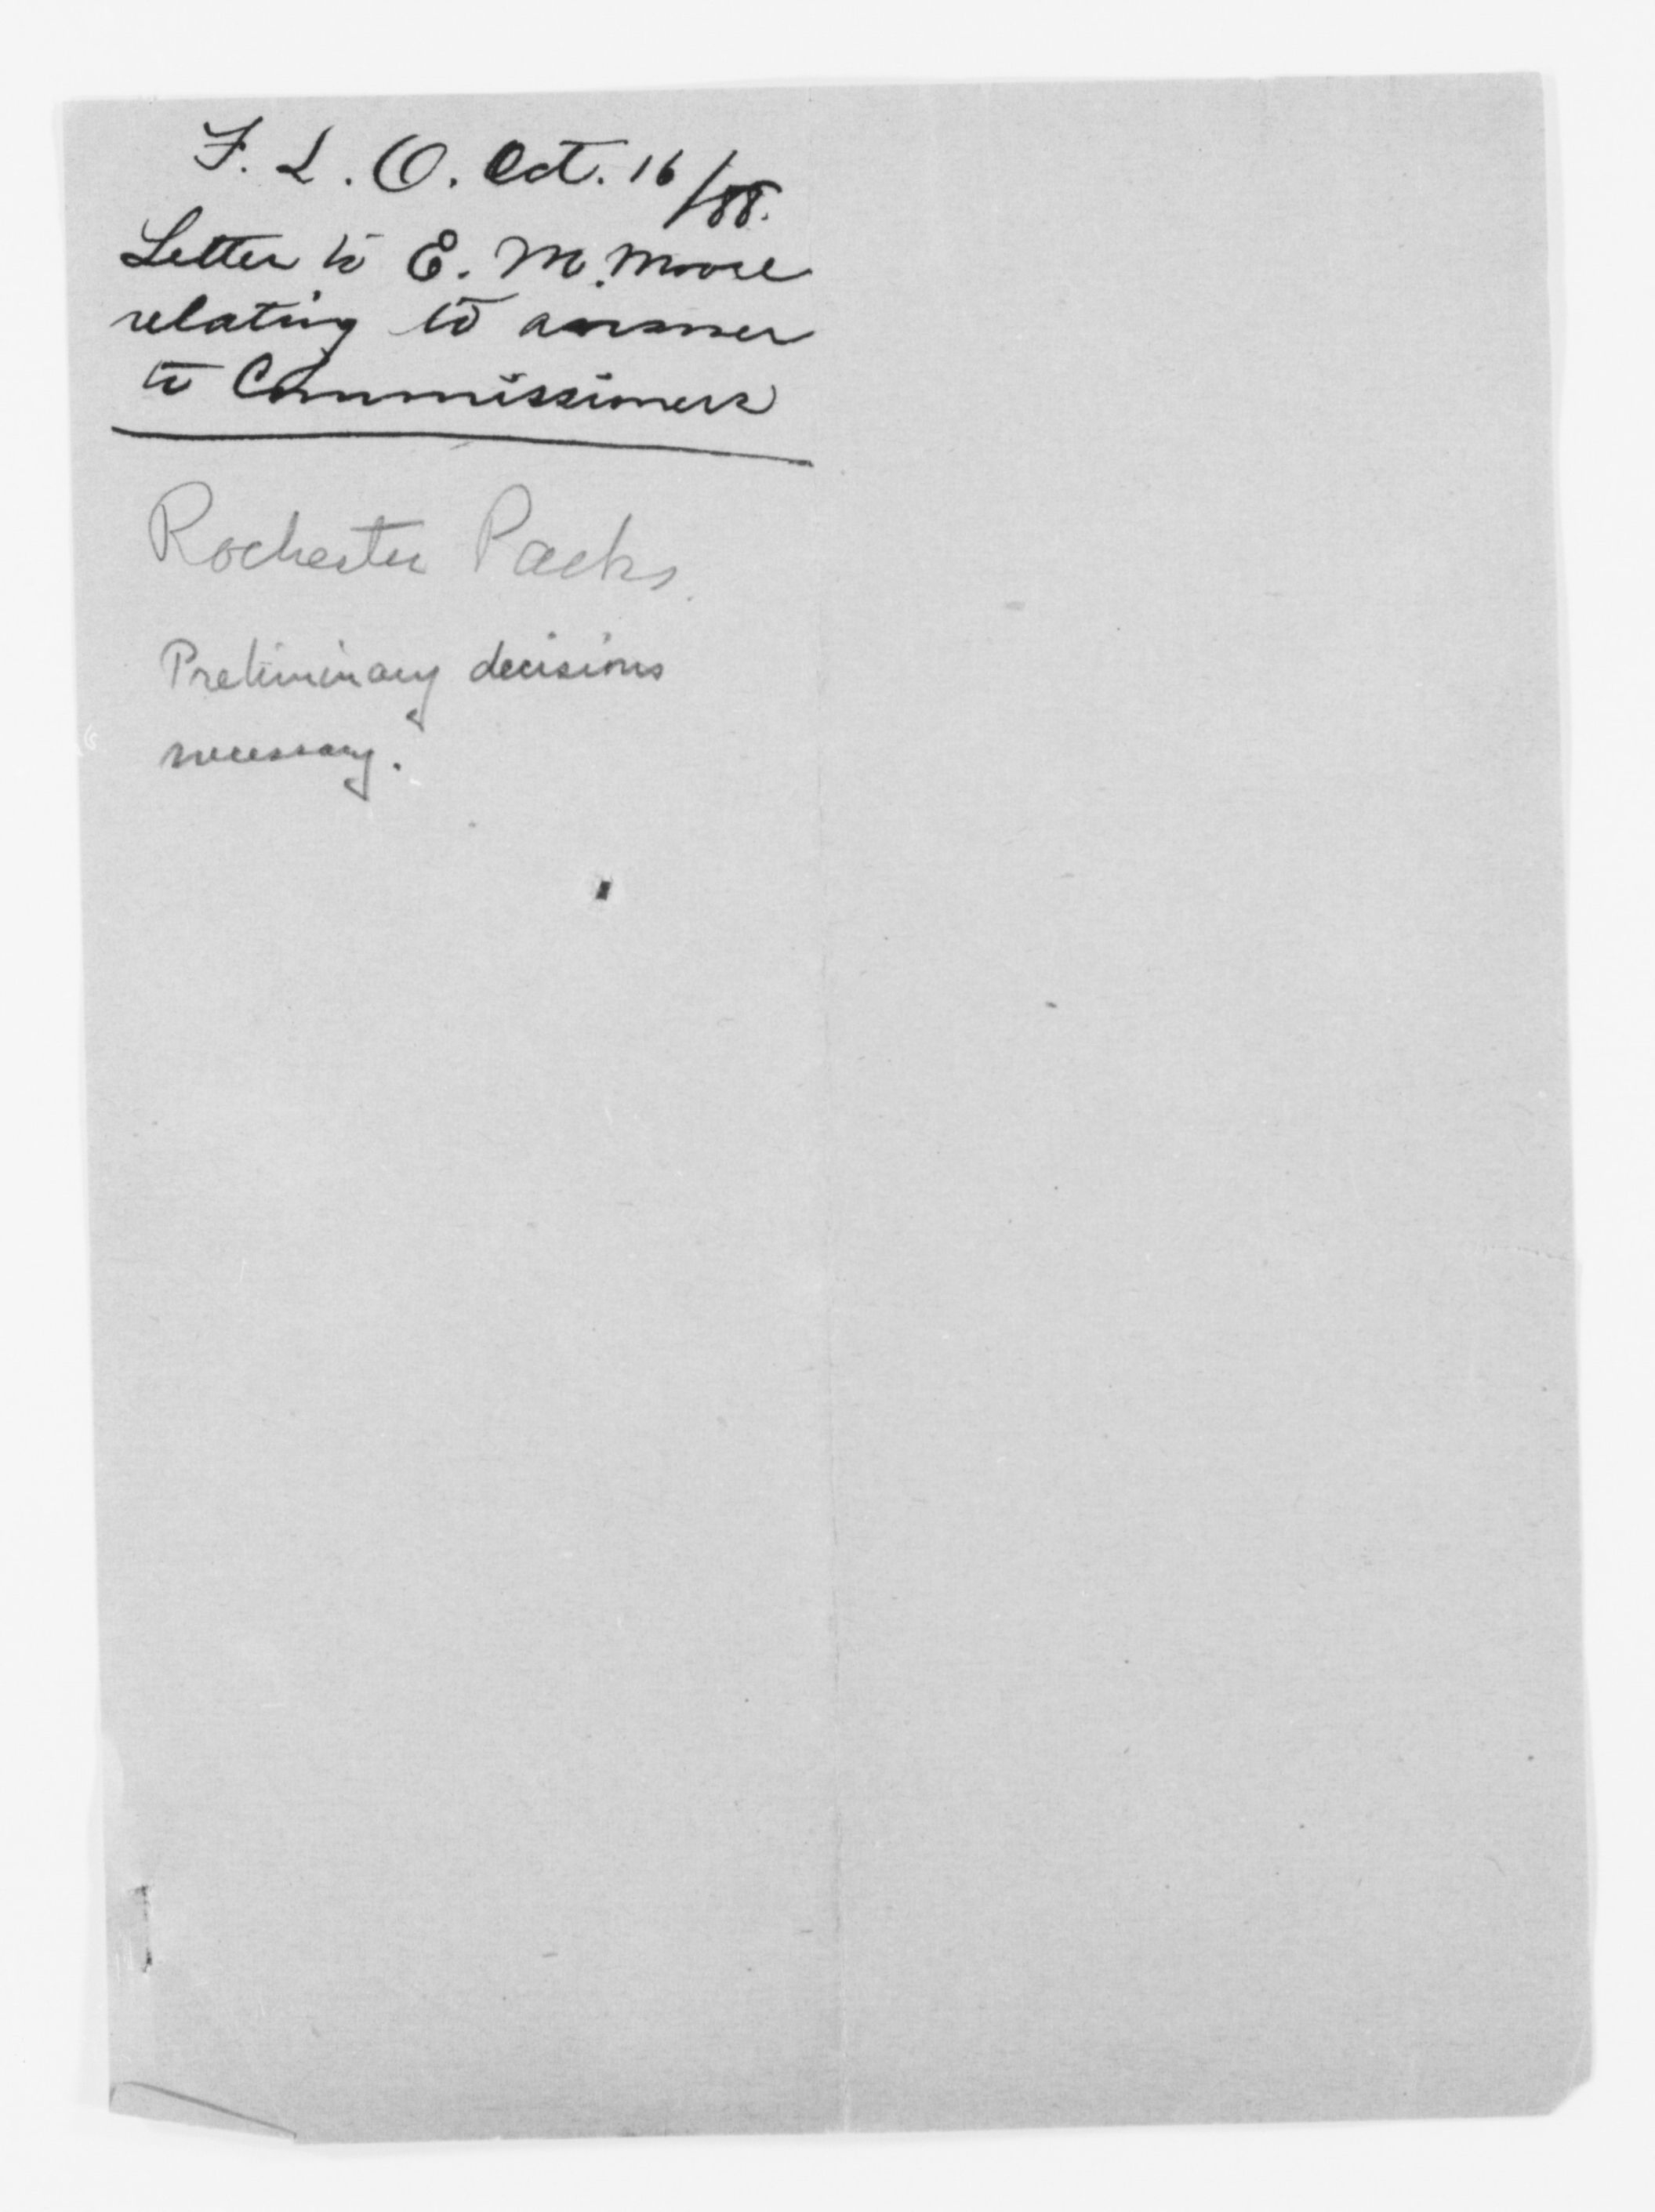 F. L. O. Oct. 16/88.
Letter to E. M. Moore
relating to answer
to Commissioners
Rochester Parks.
Preliminary decisions
necessary.